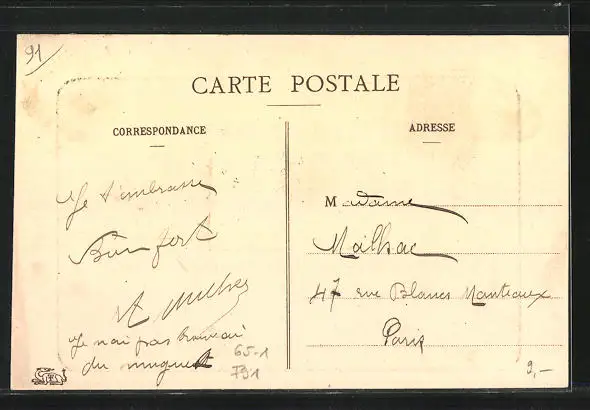 91
CARTE POSTALE
CORRESPONDANCE
Je t'embrasse
Bien fort
Je n'ai pas trouvé
du muguet
65-1
791
ADRESSE
Madame
Malhac
47 rue Blancs Manteaux
Paris
9,-